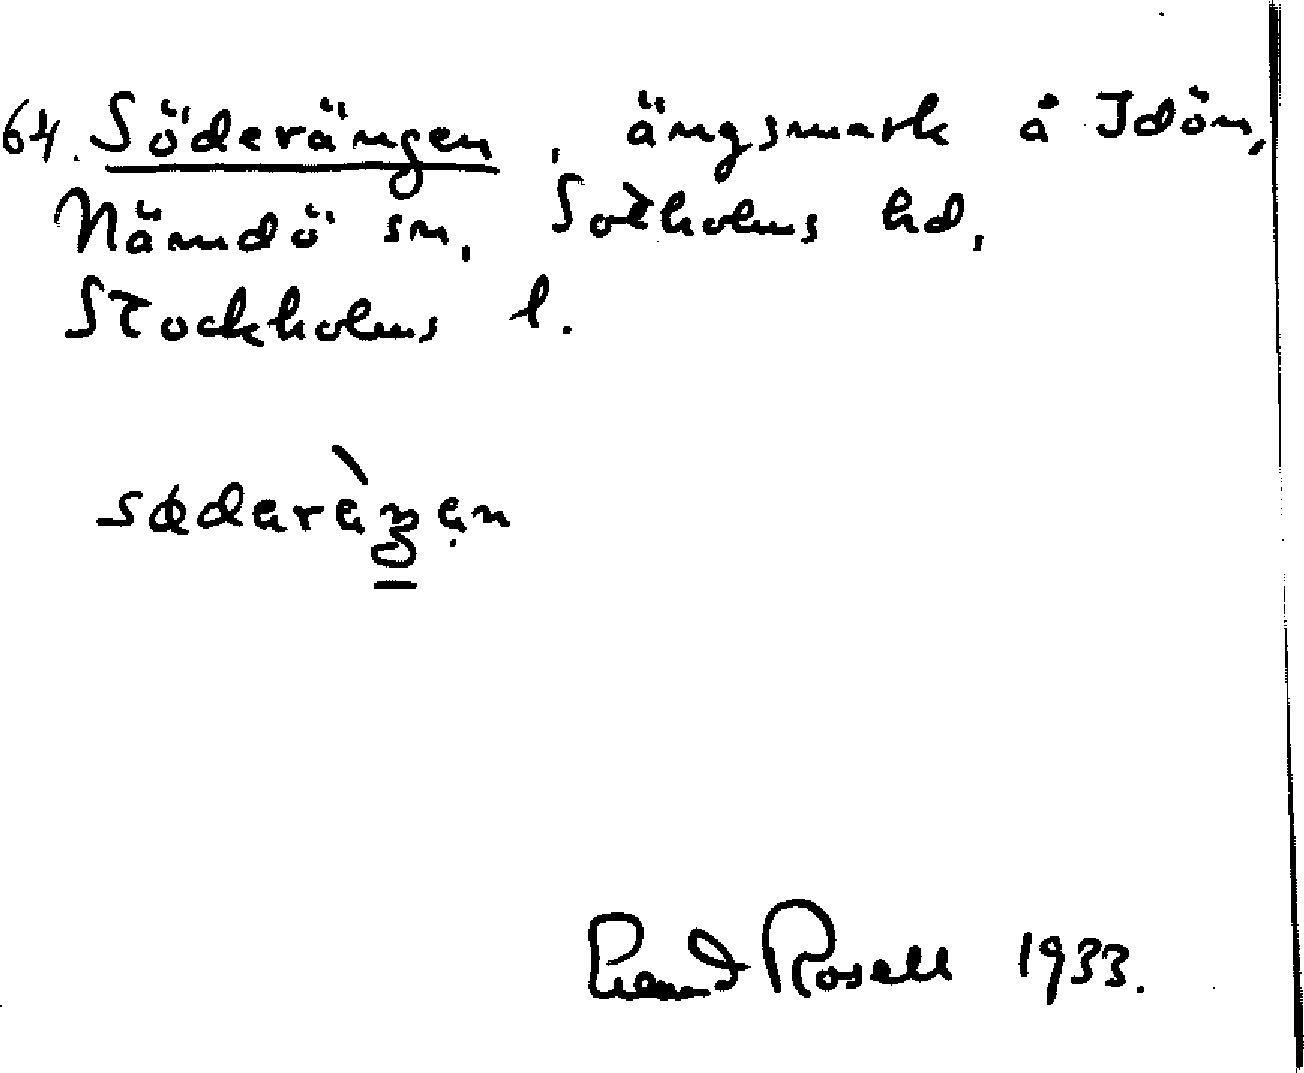 64. Söderängen, ängsmark å Idön,
Nämdö sn, Sotholms hd,
Stockholms l.
Rosell 1933.